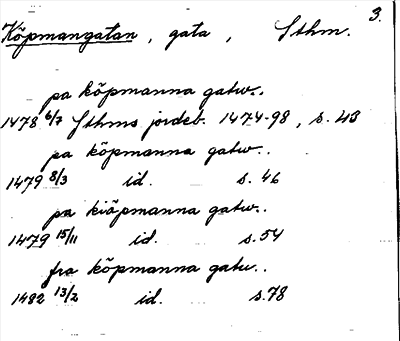 3.
Köpmangatan, gata, Sthm.
pa köpmanna gatw..
1478 6/7 Sthms jordeb. 1474-98, s. 43
pa köpmanna gatw..
1479 8/3 id. s. 46
pa kiöpmanna gatw..
1479 15/11 id. s. 54
fra köpmanna gatw..
1482 13/2 id. s. 78